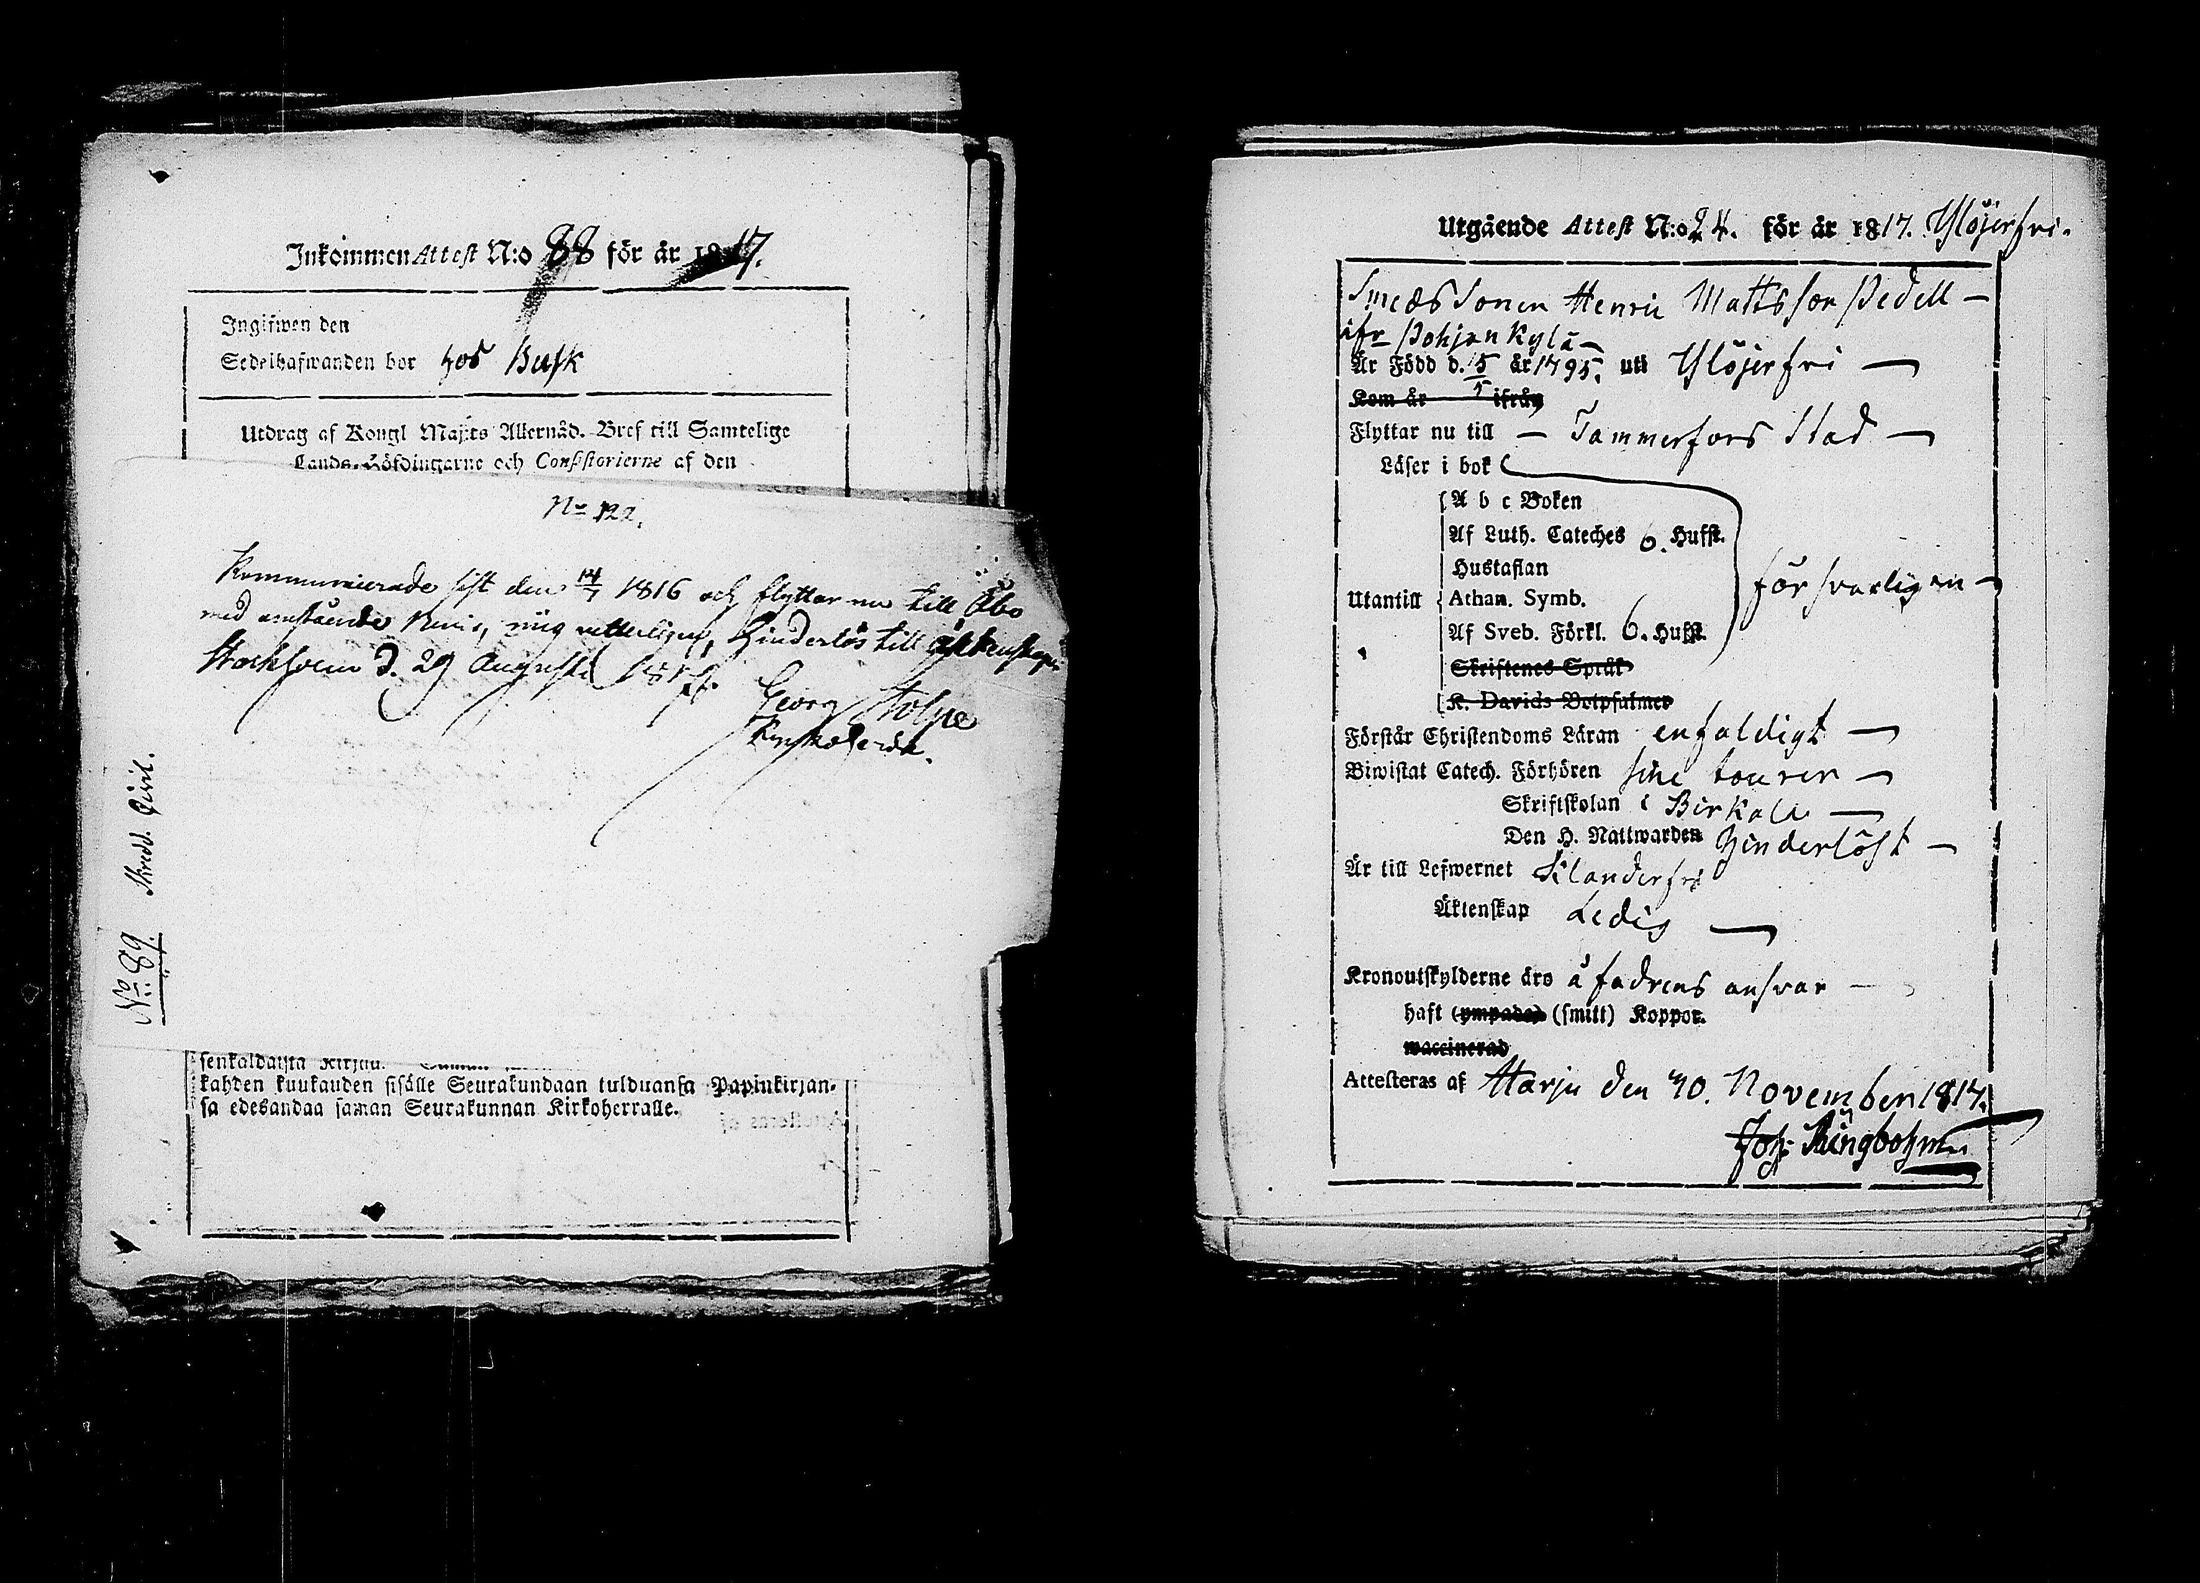 Inkommen Attest N:o 88 för år 1817.
Ingifwen den
Sedelhafwanden bor hos Busk
Utdrag af Kongl Maj:ts Allernåd. Bref till Samtelige
Lands-Höfdingarne och Consistorierne af den
No 122.
Kommunicerade sist den 14/7 1816 och flyttar nu till Åbo
med omstående Bevis, mig vetterligen, hinderlös till äktenskap
Stockholm d. 29 Augusti
Georg Stolpe
Kyrkoherde.
No 89. Skredd. Qvist.
senkaldaista Kirjan.
kahden kuukauden sisälle Seurakundaan tulduansa Papinkirjan-
sa edesandaa saman Seurakunnan Kirkoherralle.
Utgående Attest N:o 24. för år 1817. Ylöjerfvi.
Smeds Sonen Henric Mattsson Pedell —
ifr Pohjankylä —
Är Född d. 15/5 år 1795. uti Ylöjerfvi —
Kom år ifrån
Flyttar nu till — Tammerfors Stad —
Läser i bok
A b c Boken
Af Luth. Cateches 6. Hufst.
Hustaflan
Utantill Athan. Symb. försvarligen —
Af Sveb. Förkl. 6. Hufst.
Skriftenes Språk
K. Davids Botpsalmer
Förstår Christendoms Läran enfaldigt —
Biwistat Catech. Förhören sine tourer —
Skriftskolan i Birkala —
Den H. Nattwarden hinderlöst —
Är till Lefwernet Klanderfri
Äktenskap Ledig —
Kronoutskylderne äro å fadrens answar —
haft (ympade) (smitt) Koppor.
waccinerad
Attesteras af Harju den 30. November 1817.
Joh: Ringbohm